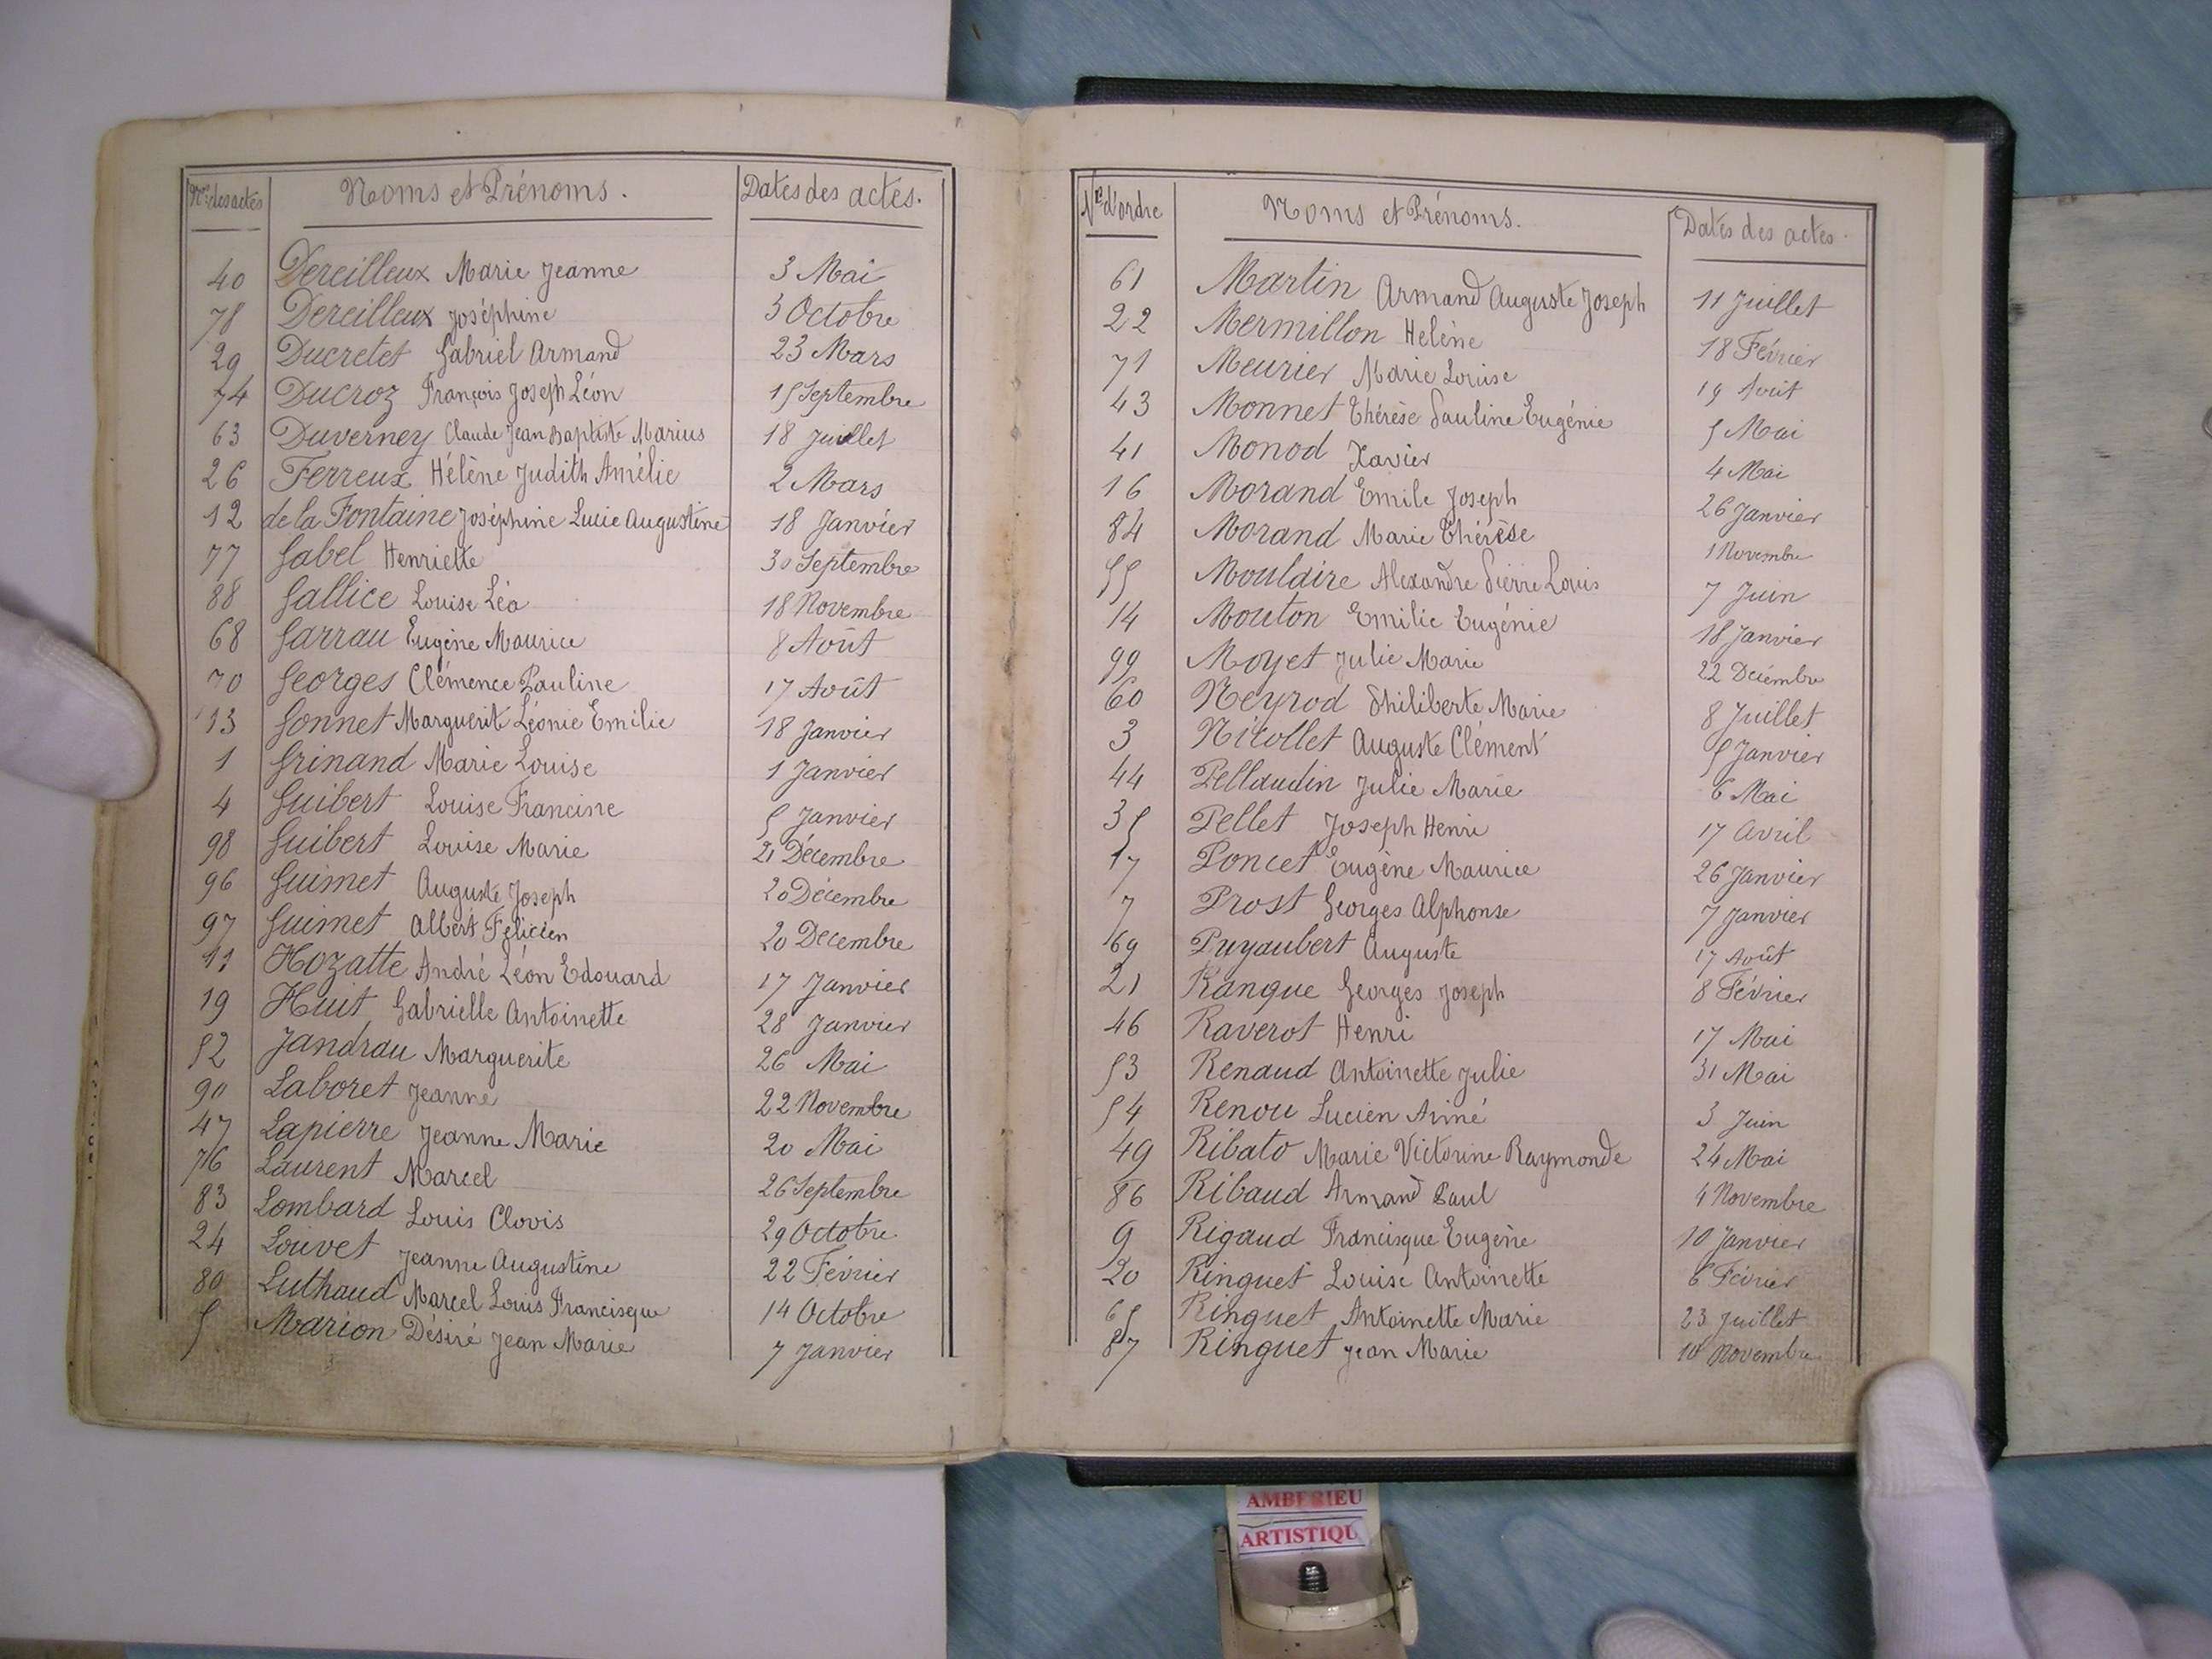 Nos des actes Noms et Prénoms. Dates des actes.
40 Dereilleux Marie Jeanne 3 Mai
78 Dereilleux Joséphine 3 Octobre
29 Ducretet Gabriel Armand 23 Mars
74 Ducroz François Joseph Léon 15 Septembre
63 Duverney Claude Jean Baptiste Marius 18 Juillet
26 Ferreux Hélène Judith Amélie 2 Mars
12 de la Fontaine Joséphine Lucie Augustine 18 Janvier
77 Gabel Henriette 30 Septembre
88 Gallice Louise Léa 18 Novembre
68 Garrau Eugène Maurice 8 Août
70 Georges Clémence Pauline 17 Août
13 Gonnet Marguerite Léonie Emilie 18 Janvier
1 Grinand Marie Louise 1 Janvier
4 Guibert Louise Francine 5 Janvier
98 Guibert Louise Marie 21 Décembre
96 Guimet Auguste Joseph 20 Décembre
97 Guimet Albert Félicien 20 Décembre
11 Hozatte André Léon Edouard 17 Janvier
19 Huit Gabrielle Antoinette 28 Janvier
52 Jandrau Marguerite 26 Mai
90 Laboret Jeanne 22 Novembre
47 Lapierre Jeanne Marie 20 Mai
76 Laurent Marcel 26 Septembre
83 Lombard Louis Clovis 29 Octobre
24 Louvet Jeanne Augustine 22 Février
80 Luthaud Marcel Louis Francisque 14 Octobre
5 Marion Désiré Jean Marie 7 Janvier
Nos d'ordre Noms et Prénoms. Dates des actes.
61 Martin Armand Auguste Joseph 11 Juillet
22 Mermillon Helène 18 Février
71 Meurier Marie Louise 19 Août
43 Monnet Thérèse Pauline Eugénie 5 Mai
41 Monod Xavier 4 Mai
16 Morand Emile Joseph 26 Janvier
84 Morand Marie Thérèse 1 Novembre
55 Mouldire Alexandre Pierre Louis 7 Juin
14 Mouton Emilie Eugénie 18 Janvier
99 Moyet Julie Marie 22 Décembre
60 Neyrod Philiberte Marie 8 Juillet
3 Nicollet Auguste Clément 5 Janvier
44 Pellaudin Julie Marie 6 Mai
35 Pellet Joseph Henri 17 Avril
17 Poncet Eugène Maurice 26 Janvier
7 Prost Georges Alphonse 7 Janvier
69 Puyaubert Auguste 17 Août
21 Ranque Georges Joseph 8 Février
46 Raverot Henri 17 Mai
53 Renaud Antoinette Julie 31 Mai
54 Renou Lucien Aimé 3 Juin
49 Ribato Marie Victorine Raymonde 24 Mai
86 Ribaud Armand Paul 4 Novembre
9 Rigaud Francisque Eugène 10 Janvier
20 Ringuet Louise Antoinette 6 Février
65 Ringuet Antoinette Marie 23 Juillet
87 Ringuet Jean Marie 10 Novembre
AMBERIEU
ARTISTIQU